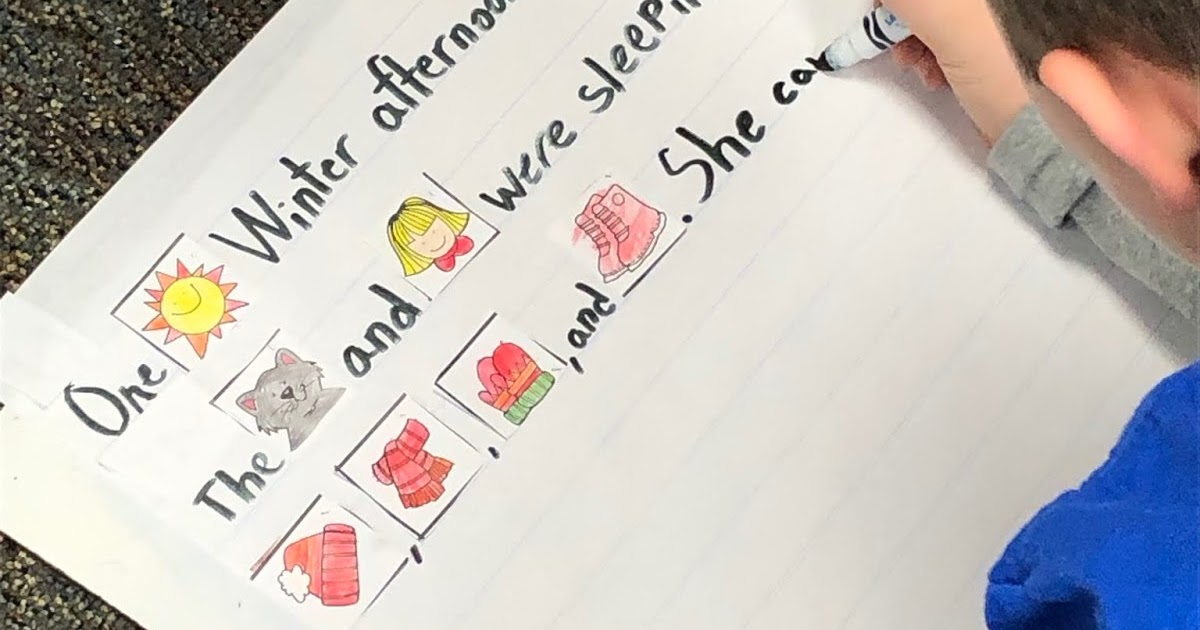 One Winter afternoo
The and were sleepi
, , , and . She